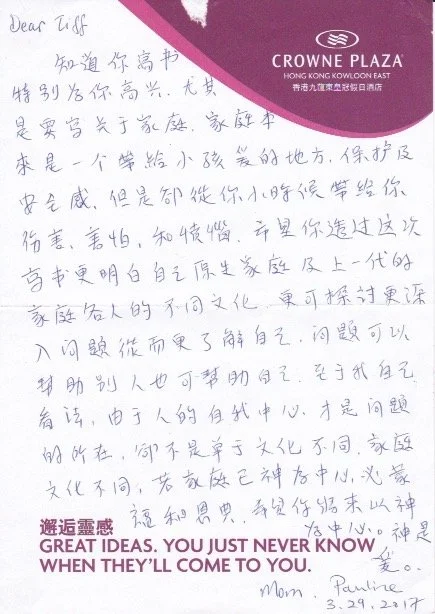 Dear Tiff
CROWNE PLAZA
HONG KONG KOWLOON EAST
香港九龍東皇冠假日酒店
知道你寫书
特别为你高兴. 尤其
是要写关于家庭. 家庭本
來是一个帶給小孩爱的地方. 保护及
安全感. 但是卻從你小時候帶給你
伤害, 害怕, 和愤惱. 希望你透过这次
写书更明白自己原生家庭及上一代的
家庭各人的不同文化. 更可探討更深
入问題從而更了解自己. 问題可以
幫助别人也可幫助自己. 至于我自己
看法, 由于人的自我中心, 才是问題
的所在, 卻不是单于文化不同. 家庭
文化不同, 若家庭已神为中心, 必蒙
福和恩典. 希望你將来以神
为中心。神是
爱。
邂逅靈感
GREAT IDEAS. YOU JUST NEVER KNOW
WHEN THEY'LL COME TO YOU.
Mom. Pauline
3.29.2017